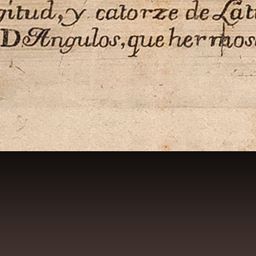 gitud, y catorze de Lati
D Angulos, que hermos